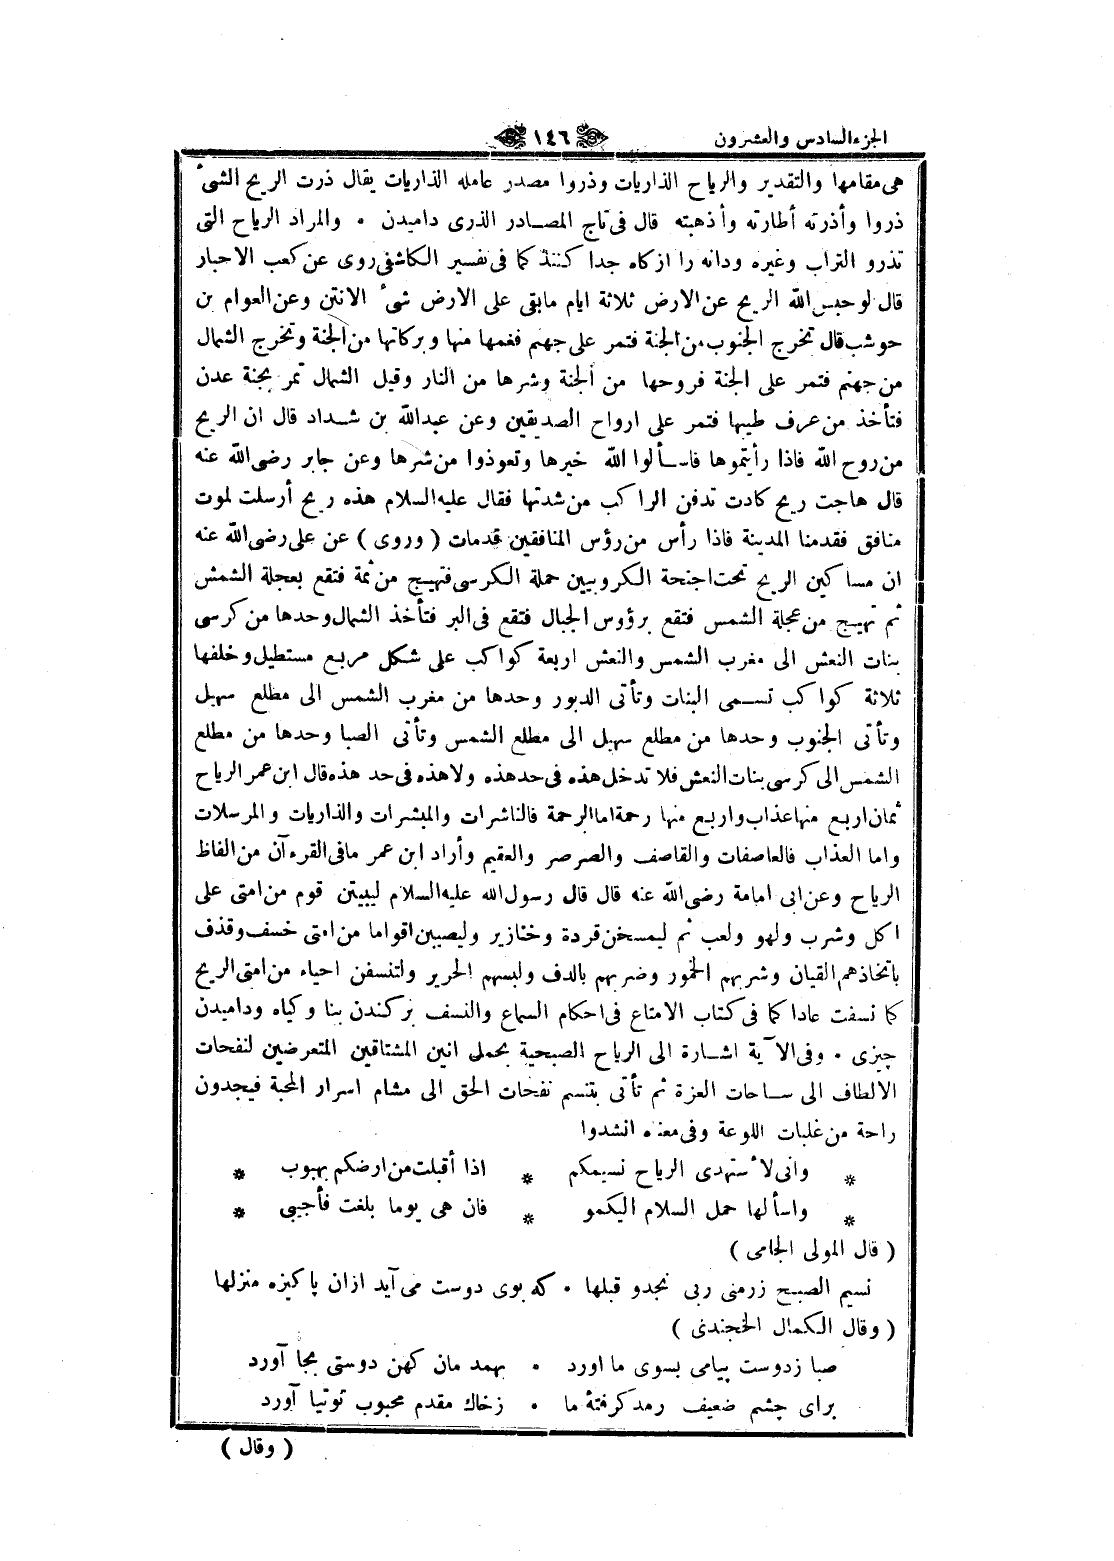 الجزء السادس والعشرون ١٤٦
هى مقامها والتقدير والرياح الذاريات وذروا مصدر عامله الذاريات يقال ذرت الريح الشىء
ذروا وأذرته أطارته وأذهبته قال فى تاج المصادر الذرى داميدن • والمراد الرياح التى
تذرو التراب وغيره ودانه را ازكاه جدا كنند كما فى تفسير الكاشفى روى عن كعب الاحبار
قال لو حبس الله الريح عن الارض ثلاثة ايام مابقى على الارض شىء الانتن وعن العوام بن
حوشب قال تخرج الجنوب من الجنة فتمر على جهنم فغمها منها وبركاتها من الجنة وتخرج الشمال
من جهنم فتمر على الجنة فروحها من الجنة وشرها من النار وقيل الشمال تمر بجنة عدن
فتأخذ من عرف طيبها فتمر على ارواح الصديقين وعن عبدالله بن شداد قال ان الريح
من روح الله فاذا رأيتموها فاسألوا الله خيرها وتعوذوا من شرها وعن جابر رضى الله عنه
قال هاجت ريح كادت تدفن الراكب من شدتها فقال عليه السلام هذه ريح أرسلت لموت
منافق فقدمنا المدينة فاذا رأس من رؤس المنافقين قدمات ( وروى ) عن على رضى الله عنه
ان مساكين الريح تحت اجنحة الكروبيين حملة الكرسى فتهيج من ثمة فتقع بعجلة الشمس
ثم تهيج من عجلة الشمس فتقع برؤوس الجبال فتقع فى البر فتأخذ الشمال وحدها من كرسى
بنات النعش الى مغرب الشمس والنعش اربعة كواكب على شكل مربع مستطيل وخلفها
ثلاثة كواكب تسمى البنات وتأتى الدبور وحدها من مغرب الشمس الى مطلع سهيل
وتأتى الجنوب وحدها من مطلع سهيل الى مطلع الشمس وتأتى الصبا وحدها من مطلع
الشمس الى كرسى بنات النعش فلا تدخل هذه فى حد هذه ولا هذه فى حد هذه قال ابن عمر الرياح
ثمان اربع منها عذاب واربع منها رحمة اما الرحمة فالناشرات والمبشرات والذاريات والمرسلات
واما العذاب فالعاصفات والقاصف والصرصر والعقيم وأراد ابن عمر مافى القرءآن من الفاظ
الرياح وعن ابى امامة رضى الله عنه قال قال رسول الله عليه السلام ليبيتن قوم من امتى على
اكل وشرب ولهو ولعب ثم ليمسخن قردة وخنازير وليصيبن اقواما من امتى خسف وقذف
باتخاذهم القيان وشربهم الخمور وضربهم بالدف ولبسهم الحرير ولتنسفن احياء من امتى الريح
كما نسفت عادا كما فى كتاب الامتاع فى احكام السماع والنسف بركندن بنا وكياه وداميدن
چيزى • وفى الآية اشارة الى الرياح الصبحية بحمل انين المشتاقين المتعرضين لنفحات
الالطاف الى ساحات العزة ثم تأتى بتنسم نفحات الحق الى مشام اسرار المحبة فيجدون
راحة من غلبات اللوعة وفى معناه انشدوا
* وانى لأستهدى الرياح نسيمكم * اذا أقبلت من ارضكم بهبوب *
* واسألها حمل السلام اليكمو * فان هى يوما بلغت فأجيبى *
( قال المولى الجامى )
نسيم الصبح زرمنى ربى نجدو قبلها • كه بوى دوست مى آيد ازان پاكيزه منزلها
( وقال الكمال الخجندى )
صبا زدوست پيامى بسوى ما اورد • بهمد مان كهن دوستى بجا آورد
براى چشم ضعيف رمد كرفتۀ ما • زخاك مقدم محبوب توتيا آورد
( وقال )